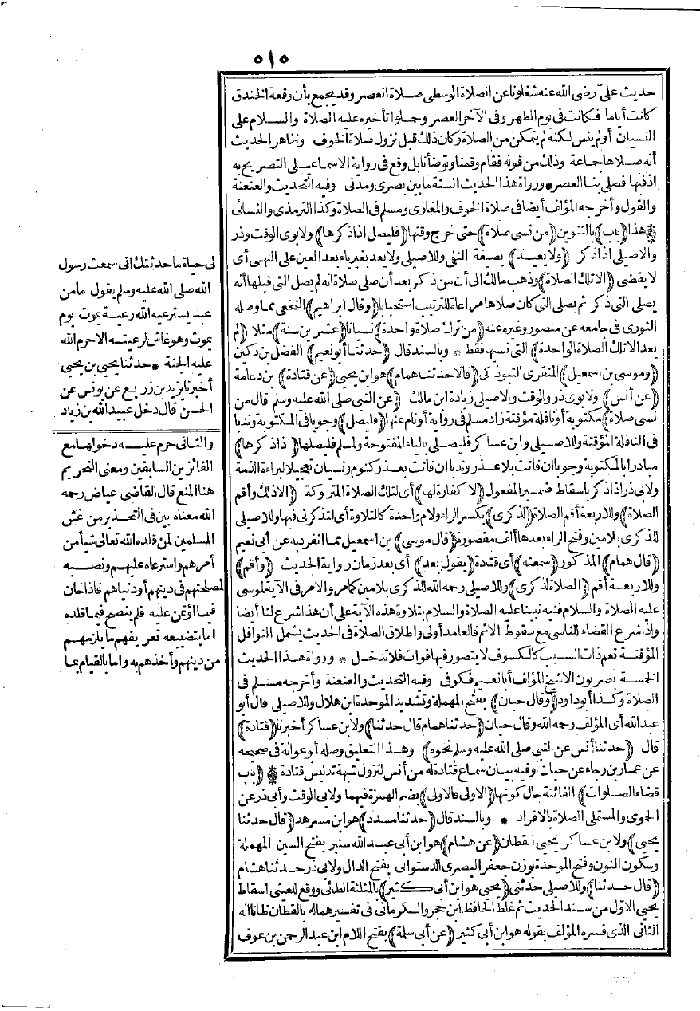 ٥١٥
حديث على رضى الله عنه شغلونا عن الصلاة الوسطى صلاة العصر وقد يجمع بأن وقعة الخندق
كانت أياما فكانت فى يوم الظهر وفى الآخر العصر وحملوا تأخيره عليه الصلاة والسلام على
النسيان أو لم ينس لكنه لم يتمكن من الصلاة وكان ذلك قبل نزول صلاة الخوف وظاهر الحديث
أنه صلاها جماعة وذلك من قوله فقام وقمنا وتوضأ بل وقع فى رواية الاسماعيلى التصريح به
اذ فيها فصلى بنا العصر * ورواة هذا الحديث الستة ما بين بصرى ومدنى وفيه التحديث والعنعنة
والقول وأخرجه المؤلف أيضا فى صلاة الخوف والمغازى ومسلم فى الصلاة وكذا الترمذى والنسائى
* هذا (باب) بالتنوين (من نسى صلاة) حتى خرج وقتها (فليصل اذا ذكرها) ولابوى الوقت وذر
والاصيلى اذا ذكر (ولا يعيد) بصيغة النفى وللاصيلى ولا يعد بغير ياء بعد العين على النهى أى
لا يقضى (الا تلك الصلاة) وذهب مالك الى أن من ذكر بعد أن صلى صلاة انه لم يصل التى قبلها أنه
يصلى التى ذكر ثم يصلى التى كان صلاها مراعاة للترتيب استحبابا (وقال ابراهيم) النخعى مما وصله
الثورى فى جامعه عن منصور وغيره عنه (من ترك صلاة واحدة) نسيانا (عشرين سنة) مثلا (لم
يعد الا تلك الصلاة الواحدة) التى نسيها فقط * وبالسند قال (حدثنا أبو نعيم) الفضل بن دكين
(وموسى بن اسمعيل) المنقرى التبوذكى (قالا حدثنا همام) هو ابن يحيى (عن قتادة) بن دعامة
(عن أنس) ولابوى ذر والوقت والاصيلى زيادة ابن مالك (عن النبى صلى الله عليه وسلم قال من
نسى صلاة) مكتوبة أو نافلة مؤقتة زاد مسلم فى رواية أو نام عنها (فليصل) وجوبا فى المكتوبة وندبا
فى النافلة المؤقتة وللاصيلى وابن عساكر فليصلى بالياء المفتوحة ولمسلم فليصلها (اذا ذكرها)
مبادرا بالمكتوبة وجوبا ان فاتت بلا عذر وندبا ان فاتت بعذر كنوم ونسيان تعجيلا لبراءة الذمة
ولابى ذر اذا ذكر باسقاط ضمير المفعول (لا كفارة لها) أى لتلك الصلاة المتروكة (الا ذلك وأقم
الصلاة) وللاربعة أقم الصلاة (لذكرى) بكسر الراء ولام واحدة كالتلاوة أى لتذكرنى فيها وللاصيلى
للذكرى بلامين وفتح الراء بعدها ألف مقصورة (قال موسى) بن اسمعيل مما انفرد به عن أبى نعيم
(قال همام) المذكور (سمعته) أى قتادة (يقول بعد) أى بعد زمان رواية الحديث (وأقم)
وللاربعة أقم (الصلاة لذكرى) وللاصيلى رحمه الله للذكرى بلامين كما مر والامر فى الآية لموسى
عليه الصلاة والسلام فنبه نبينا عليه الصلاة والسلام بتلاوة هذه الآية على أن هذا شرع لنا أيضا
واذ شرع القضاء للناسى مع سقوط الاثم فالعامد أولى واطلاق الصلاة فى الحديث يشمل النوافل
المؤقتة نعم ذات السبب كالكسوف لا يتصور فيها فوات فلا تدخل * ورواة هذا الحديث
الخمسة بصريون الا شيخ المؤلف أبا نعيم فكوفى وفيه التحديث والعنعنة وأخرجه مسلم فى
الصلاة وكذا أبو داود (وقال حبان) بفتح المهملة وتشديد الموحدة ابن هلال وللاصيلى قال أبو
عبد الله أى المؤلف رحمه الله وقال حبان (حدثنا همام قال حدثنا) ولابن عساكر أخبرنا (قتادة)
قال (حدثنا أنس عن النبى صلى الله عليه وسلم نحوه) وهذا التعليق وصله أبو عوانة فى صحيحه
عن عمار بن رجاء عن حبان وفيه بيان سماع قتادة له من أنس لتزول شبهة تدليس قتادة * (باب
قضاء الصلوات) الفائتة حال كونها (الاولى فالاولى) بضم الهمزة فيهما ولابى الوقت وأبى ذر عن
الحموى والمستملى الصلاة بالافراد * وبالسند قال (حدثنا مسدد) هو ابن مسرهد (قال حدثنا
يحيى) ولابن عساكر يحيى القطان (عن هشام) هو ابن أبى عبد الله سنبر بفتح السين المهملة
وسكون النون وفتح الموحدة بوزن جعفر البصرى الدستوائى بفتح الدال ولابى ذر حدثنا هشام
(قال حدثنا) وللاصيلى حدثنى (يحيى هو ابن أبى كثير) بالمثلثة الطائى ووقع للعينى اسقاط
يحيى الاول من سند الحديث ثم غلط الحافظ ابن حجر والكرمانى فى تفسيرهما له بالقطان ظانا أنه
الثانى الذى فسره المؤلف بقوله هو ابن أبى كثير (عن أبى سلمة) بفتح اللام ابن عبد الرحمن بن عوف
لى حياة ما حدثتك انى سمعت رسول
الله صلى الله عليه وسلم يقول ما من
عبد يسترعيه الله رعية يموت يوم
يموت وهو غاش لرعيته الا حرم الله
عليه الجنة * حدثنا يحيى بن يحيى
أخبرنا يزيد بن زريع عن يونس عن
الحسن قال دخل عبيد الله بن زياد
والثانى حرم عليه دخولها مع
الفائزين السابقين ومعنى التحريم
هنا المنع قال القاضى عياض رحمه
الله معناه بين فى التحذير من غش
المسلمين لمن قلده الله تعالى شيأ من
أمرهم واسترعاه عليهم ونصبه
لمصلحتهم فى دينهم أو دنياهم فاذا خان
فيما اؤتمن عليه فلم ينصح فيما قلده
اما بتضييعه تعريفهم ما يلزمهم
من دينهم وأخذهم به واما بالقيام بما